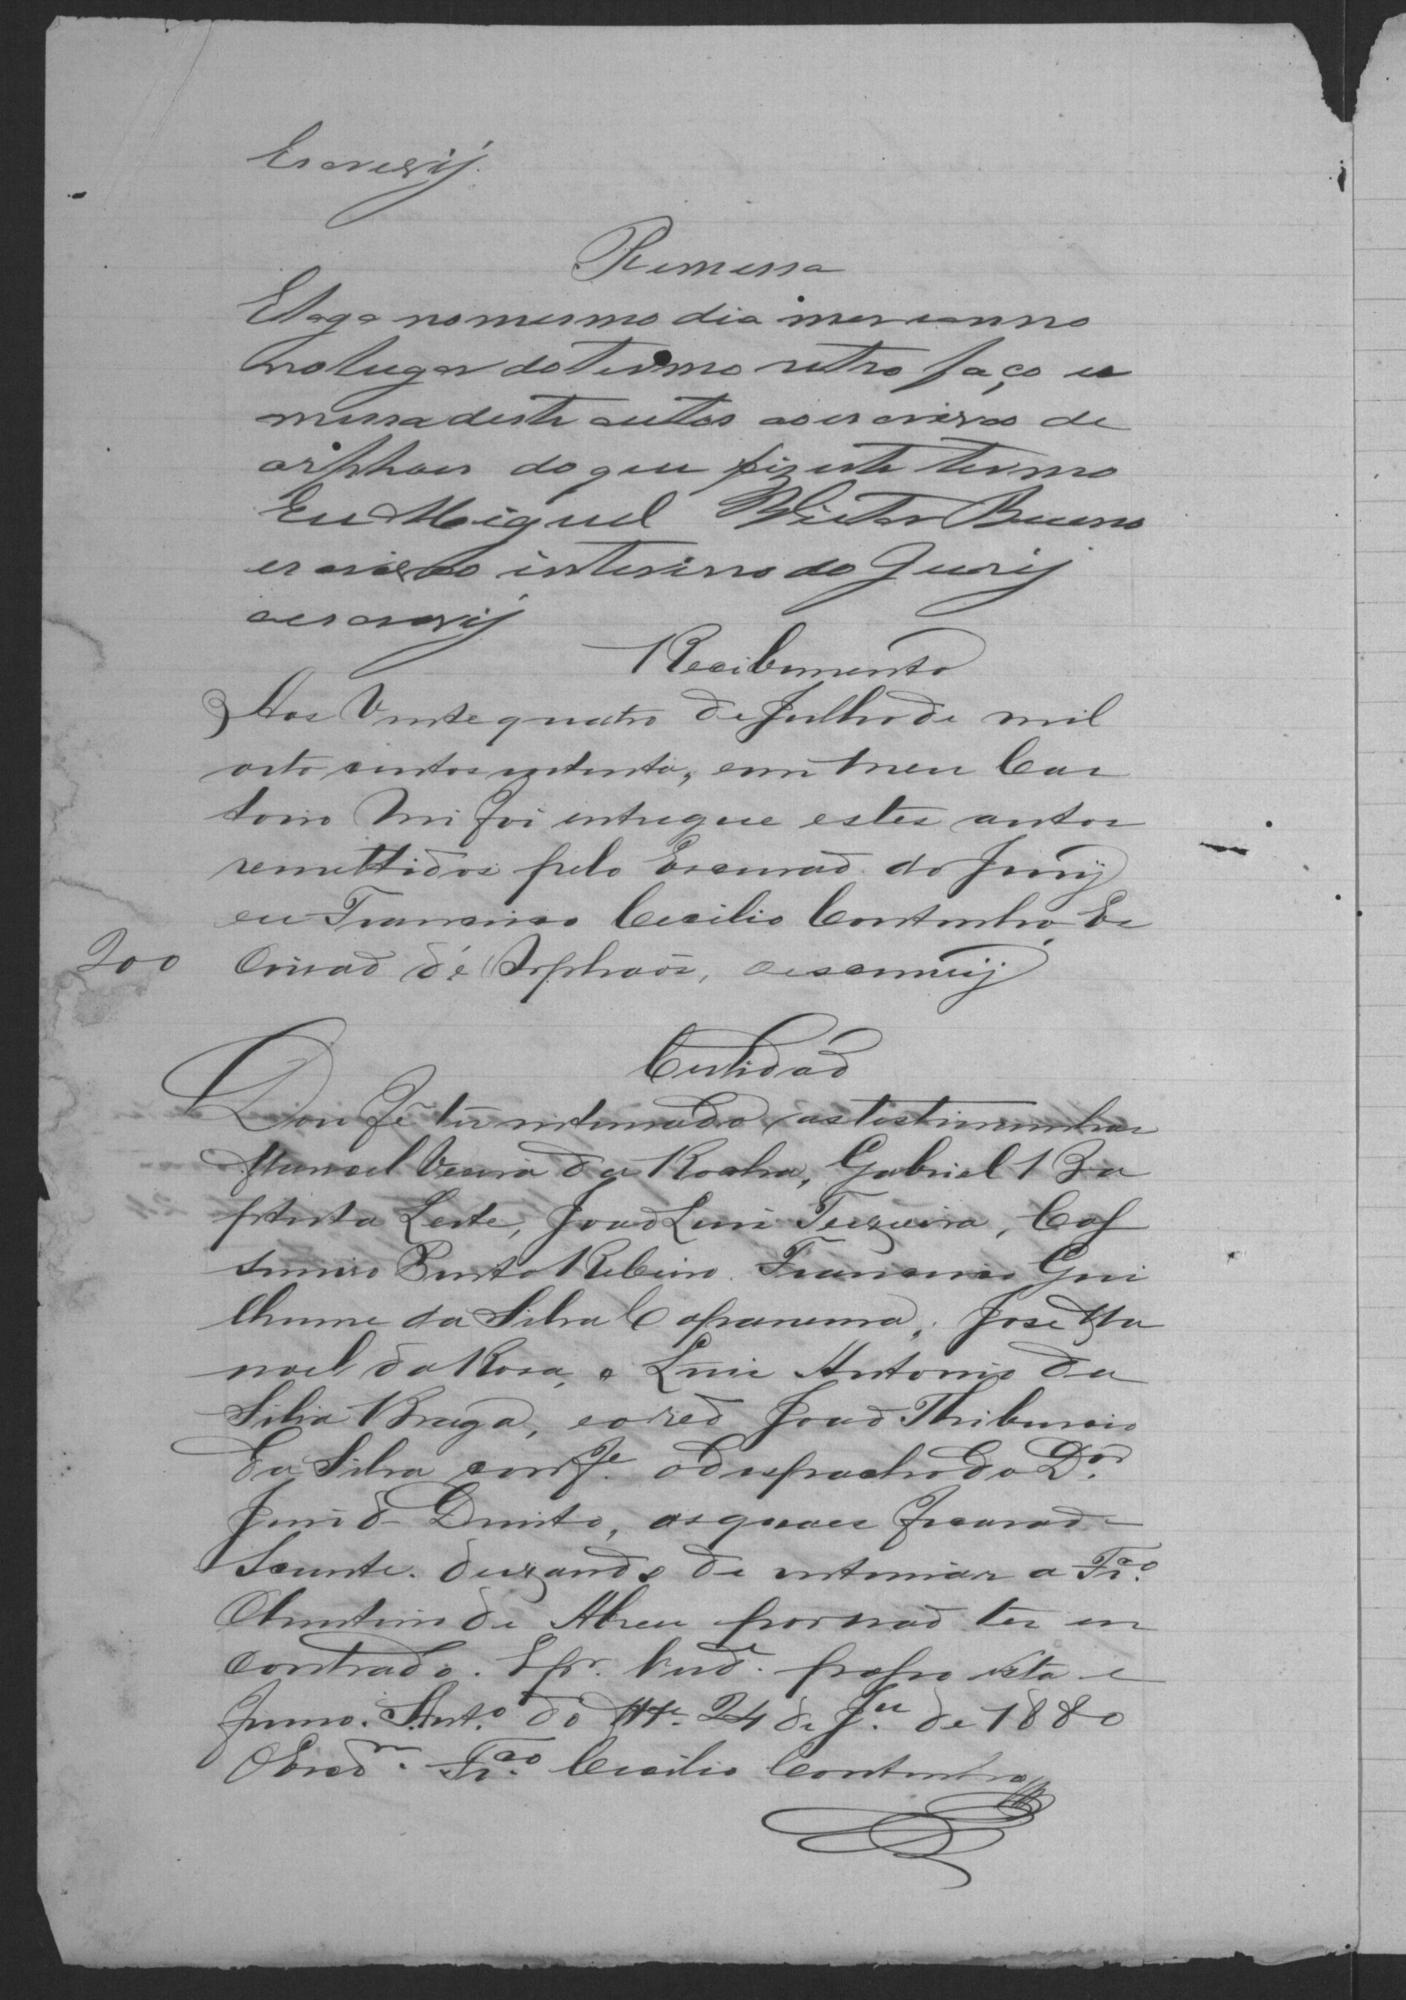 Escrevij.
Remessa
E logo no mesmo dia mes e anno
no lugar do termo retro faço re
messa deste autos ao escrivao de
orphaos do que fiz este termo
Eu Miguel Victor Bueno
escrivao interino do Jurij
o escrevij
Recibimento
Aos Vinte quatro de Julho de mil
oito centos e oitenta, em meu Car
torio Mi foi entregue estes autos
remettidos pelo Escrivaõ do Jurij
eu Francisco Cecilio Coutinho, Es
200 crivaõ de Orphaõs, o escrevij
Certidaõ
Dou fé ter intimado as testimunhas
Manoel Vieira da Rocha, Gabriel Ba
ptista Leite, Joaõ Luis Teixeira, Cas
simiro Pinto Ribeiro. Francisco Gui
lherme da Silva Capanema, José Ma
noel da Rosa, e Luis Antonio da
Silva Braga, e o reo Joaõ Thiburcio
da Silva conf.e o despacho do D.or
Juis de Direito, os quaes ficaraõ
Sciente. deixando de intimar a Fr.co
de Abreu por naõ ter en
contrado. E p.r Verd.e pafso esta e
Juro. S.Ant.o do M.e 24 de J.lu de 1880
O Escr.m Fr.co Cecilio Coutinho